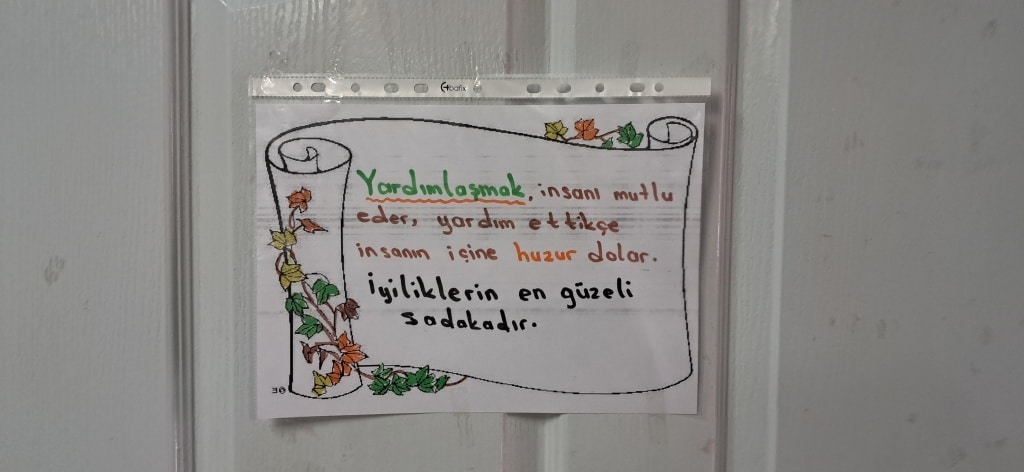 bafix
Yardımlaşmak, insanı mutlu
eder, yardım ettikçe
insanın içine huzur dolar.
İyiliklerin en güzeli
sadakadır.
30